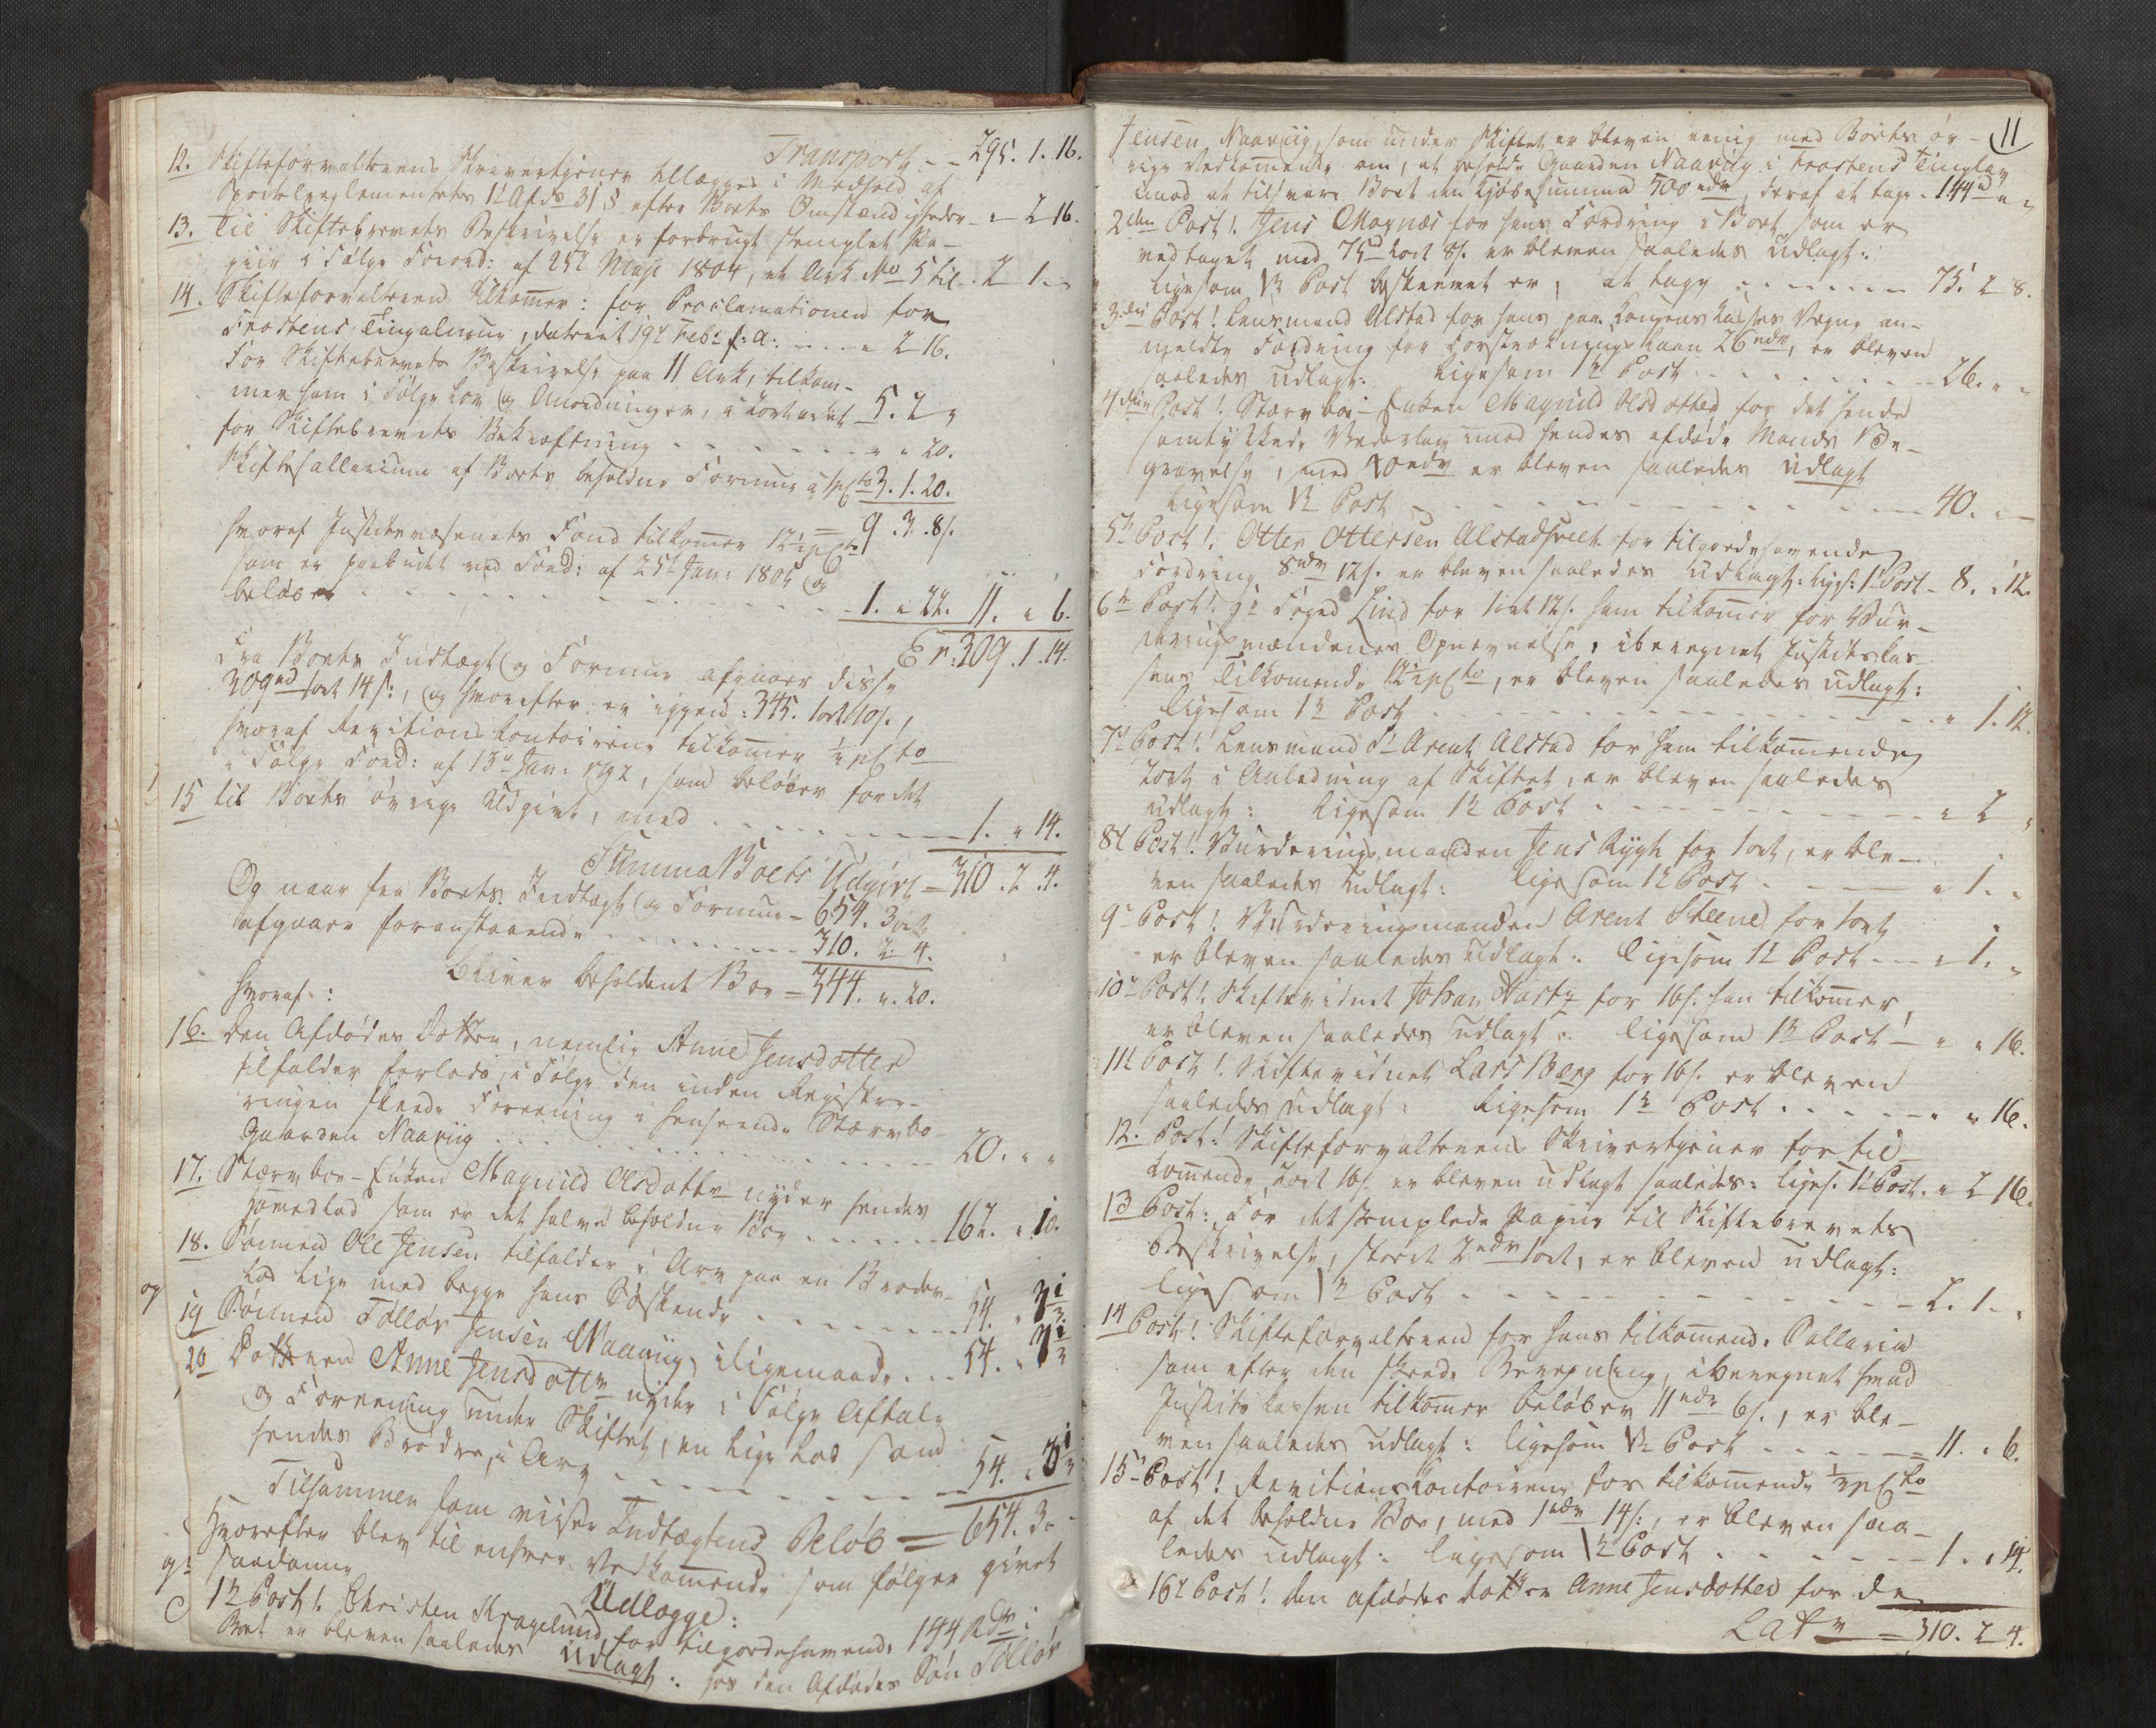 Transport - - 295. 1. 16.
12. Skifteforvalterens Skrivertjener tillægges i Medhold af
Sportelreglementets 1te Afds 31 § efter Boets Omstændigheder - " 2 16.
13. Til Skiftebrevets Beskrivelse er forbrugt stemplet Pa-
piir i Følge Forord: af 25de Maji 1804, et Ark No 5 til - 2 1. "
14. Skifteforvalteren tilkommer: for Proclamationen for
Frostens Tingalmue, dateret 19de Feb: f: a: - - - - " 2 16.
For Skiftebrevets Beskrivelse paa 11 Ark, tilkom-
mer ham i Følge Lov og Anordninger, a 2ort arket 5. 2 "
for Skiftebrevets Bekræftning - - - - - - " " 20.
Skiftesallarium af Boets beholdne Formue a 1 pCto 3. 1. 20.
= 9. 3. 8 s.
hvoraf Justitsvæsenets Fond tilkommer 12½ pCto
som er paabudet ved Ford: af 25de Jan: 1805 og
beløber - - - - - - - - - 1. " 22. 11. " 6.
Er: 309. 1. 14.
Fra Boets Indtægt og Formue afgaaer disse
309 rd 1ort 14 s:, og hvorefter er igjen: 345. 1ort 10 s.,
hvoraf Revisions Contoirene tilkommer ½ pCto
i Følge Ford: af 13de Jan: 1792, som beløber for det
15 til Boets øvrige Udgivt, med - - - - - - 1. " 14.
Summa Boets Udgivt = 310. 2. 4.
Og naar fra Boets Indtægt og Formue - 654. 3ort
afgaaer foranstaaende - - - - - - 310. 2. 4.
Bliver beholdent Boe = 344. ". 20.
hvoraf:
16. den Afdødes Datter, nemlig Anne Jensdatter
tilfalder forlods, i Følge den inden Registre-
ringen skeede Forening i henseende Stervbo-
Gaarden Naavig - - - - - - - 20. " "
17. Stervboe-Enken Magnild Olsdatter nyder hendes
Hovedlod som er det halve beholdne Boe - - - 162. " 10.
18. Sønnen Ole Jensen tilfalder i Arv paa en Broder-
Lod lige med begge hans Sødskende - - - - 54. "
19 Sønnen Tolløv Jensen Naavig, iligemaade - - - 54. "
20 Datteren Anne Jensdatter nyder i Følge Aftale
og Forening under Skiftet, en lige Lod som
hendes Brødre, i Arv - - - - - - - 54. "
Tilsammen som viiser Indtægtens Beløb = 654. 3.
Hvorefter blev til enhver Vedkommende som følger givet
saadanne
Udlægge:
1te Post! Christen Kragelund for tilgodehavende 144 Rdr i
Boet er bleven saaledes Udlagt: hos den Afdødes Søn Tolløv
11
Jensen Naavig, som under Skiftet er bleven eenig med Boets øv-
rige Vedkommende om, at beholde Gaarden Naavig i Frostens Tinglav
imod at tilsvare Boet den Kjøbesumma 500 rdr, deraf at tage - 144 " "
2den Post! Jens Moxnæs for hans Fordring i Boet som er
vedtaget med 75 rd 2ort 8 s. er bleven saaledes udlagt:
ligesom 1te Post beskrevet er, at tage - - - - - - 75. 2 8.
3die Post! Lensmand Alstad for hans paa Kongens Kasses Vegne an-
meldte Fordring for Forstrekningslaan 26 rdr, er bleven
saaledes udlagt: ligesom 1te Post - - - - - - - 26. " "
4de Post! Stervboe-Enken Magnild Olsdatter for det hende
samtykkede Vederlag imod hendes afdøde Mands Be-
gravelse, med 40 rdr er bleven saaledes udlagt
ligesom 1te Post - - - - - - - - - - - 40. " "
5te Post! Otter Ottersen Alstad for tilgodehavende
Fordring 8 rdr 12 s. er bleven saaledes udlagt: liges: 1te Post - 8. " 12.
6te Post! Hr Foged Lind for 1ort 12 s. ham tilkommer for Vur-
deringsmændenes Opnævnelse, iberegnet Justitskas-
sens Tilkommende 12½ pCto, er bleven saaledes udlagt:
ligesom 1te Post - - - - - - - - - - - " 1. 12.
7de Post! Lensmand Sr Arent Alstad for ham tilkommende
2ort i Anledning af Skiftet, er bleven saaledes
udlagt: ligesom 1te Post - - - - - - - - " 2 "
8de Post! Vurderingsmanden Jens Rygh for 1ort, er ble-
ven saaledes udlagt: ligesom 1te Post - - - - " 1. "
9de Post! Vurderingsmanden Arent Steene for 1ort
er bleven saaledes udlagt: ligesom 1te Post - - - " 1. "
10de Post! Skiftevidnet Johan Hartz for 16 s. han tilkommer,
er bleven saaledes udlagt: ligesom 1te Post - " " 16.
11te Post! Skiftevidnet Lars Berg for 16 s. er bleven
saaledes udlagt: ligesom 1te Post - - - - - " " 16.
12. Post! Skifteforvalterens Skrivertjener for til-
kommende 2ort 16 s. er bleven udlagt saaledes: liges. 1te Post. " 2 16.
13 Post: For det stemplede Papir til Skiftebrevets
Beskrivelse, stort 2 rdr 1ort, er bleven udlagt:
ligesom 1te Post - - - - - - - - - - 2. 1. "
14 Post! Skifteforvalteren for hans tilkommende Sallaria
som efter den skeede Beregning, iberegnet hvad
Justits Kassen tilkommer beløber 11 rdr 6 s., er ble-
ven saaledes udlagt: ligesom 1te Post - - - - - 11. " 6.
15de Post! Revitions Contoirene for tilkommende ½ pCto
af det beholdne Boe, med 1 rdr 14 s:, er bleven saa-
ledes udlagt: ligesom 1te Post - - - - - - 1. " 14.
16de Post! den afdødes datter Anne Jensdatter for de
Latr = 310. 2 4.